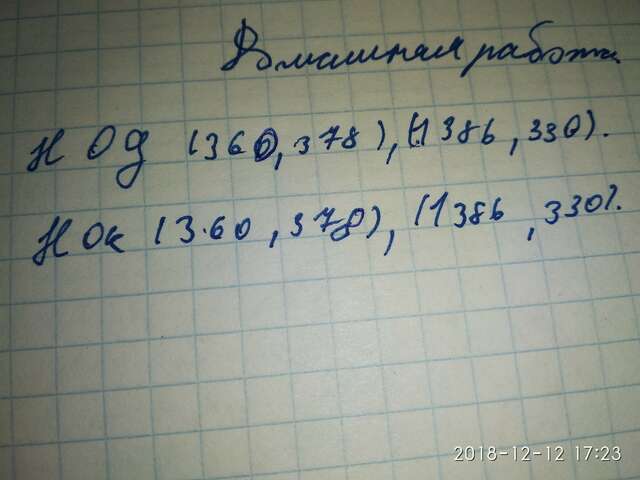 Домашная работа
НОД (360, 378), (1386, 330).
НОК (3.60, 378), (1386, 330).
2018-12-12 17:23